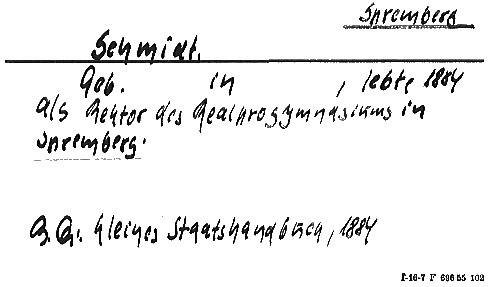 Spremberg
Schmidt.
Geb. in , lebte 1884
als Rektor des Realprogymnasiums in
Spremberg.
Kleines Staatshandbuch, 1884
I-16-7 F 696 55 102